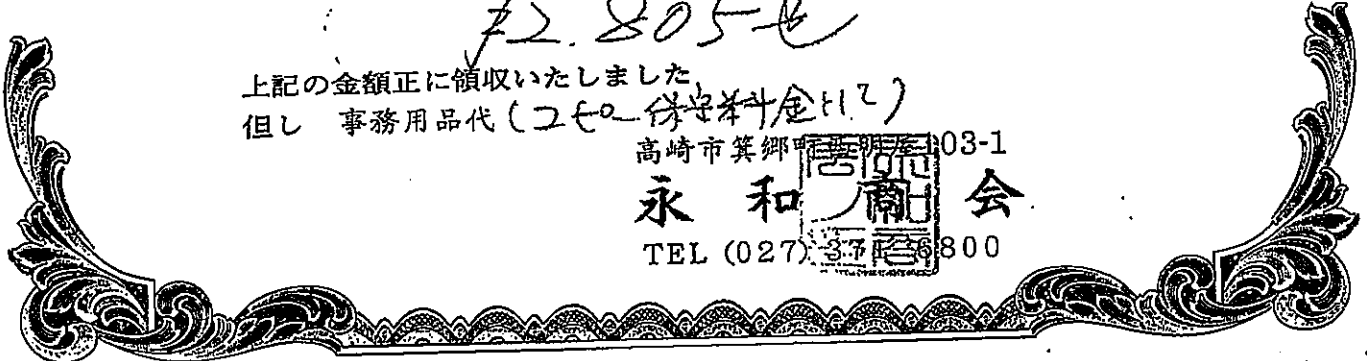 ¥2.805-也
上記の金額正に領収いたしました
但し 事務用品代(コピー保守料金H.2)
高崎市箕郷町 03-1
永和商会
TEL (027) 6800